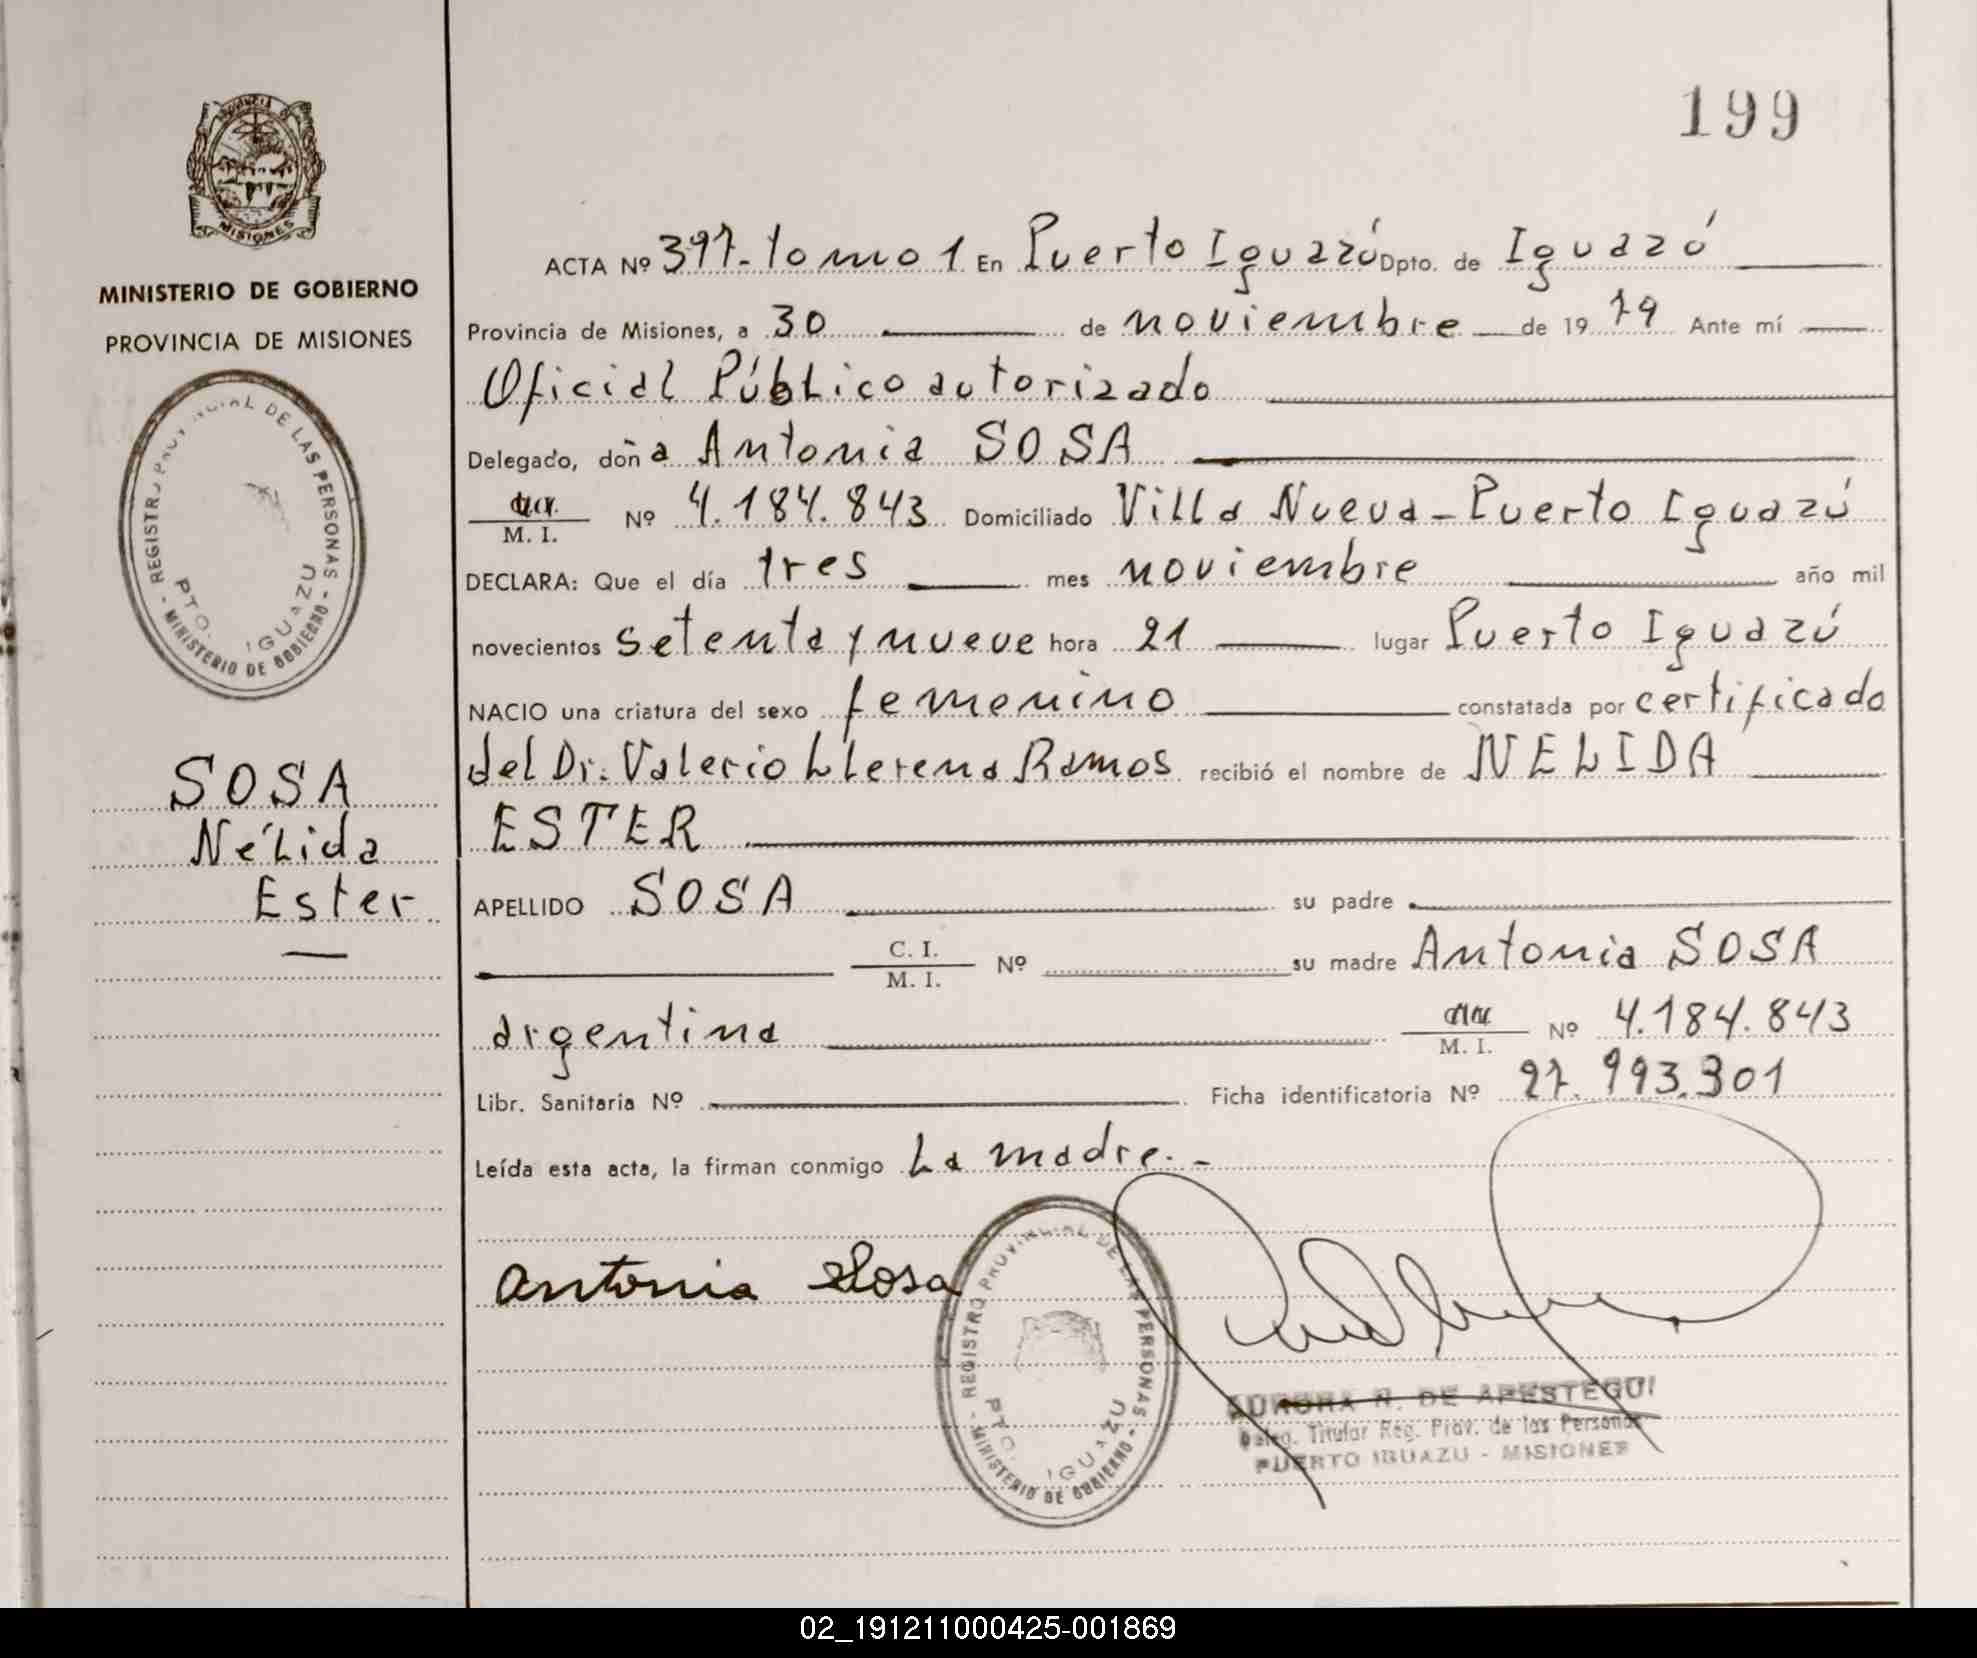 199
PROVINCIA
MISIONES
MINISTERIO DE GOBIERNO
PROVINCIA DE MISIONES
REGISTRO PROVINCIAL DE LAS PERSONAS
PTO. IGUAZU
- MINISTERIO DE GOBIERNO -
SOSA
Nélida
Ester
ACTA Nº 397-tomo 1 En Puerto Iguazú Dpto. de Iguazú
Provincia de Misiones, a 30 de noviembre de 1979 Ante mí
Oficial Público autorizado
Delegado, doña Antonia SOSA
M. I. Nº 4.184.843 Domiciliado Villa Nueva - Puerto Iguazú
DECLARA: Que el día tres mes noviembre año mil
novecientos setenta y nueve hora 21 lugar Puerto Iguazú
NACIO una criatura del sexo femenino constatada por certificado
del Dr. Valerio Llerena Ramos recibió el nombre de NELIDA
ESTER
APELLIDO SOSA su padre
C. I. M. I. Nº su madre Antonia SOSA
argentina M. I. Nº 4.184.843
Libr. Sanitaria Nº Ficha identificatoria Nº 27.993.301
Leída esta acta, la firman conmigo La madre.-
Antonia Sosa
REGISTRO PROVINCIAL DE LAS PERSONAS
PTO. IGUAZU
- MINISTERIO DE GOBIERNO -
AURORA R. DE APESTEGUI
Deleg. Titular Reg. Prov. de las Personas
PUERTO IGUAZU - MISIONES
02_191211000425-001869